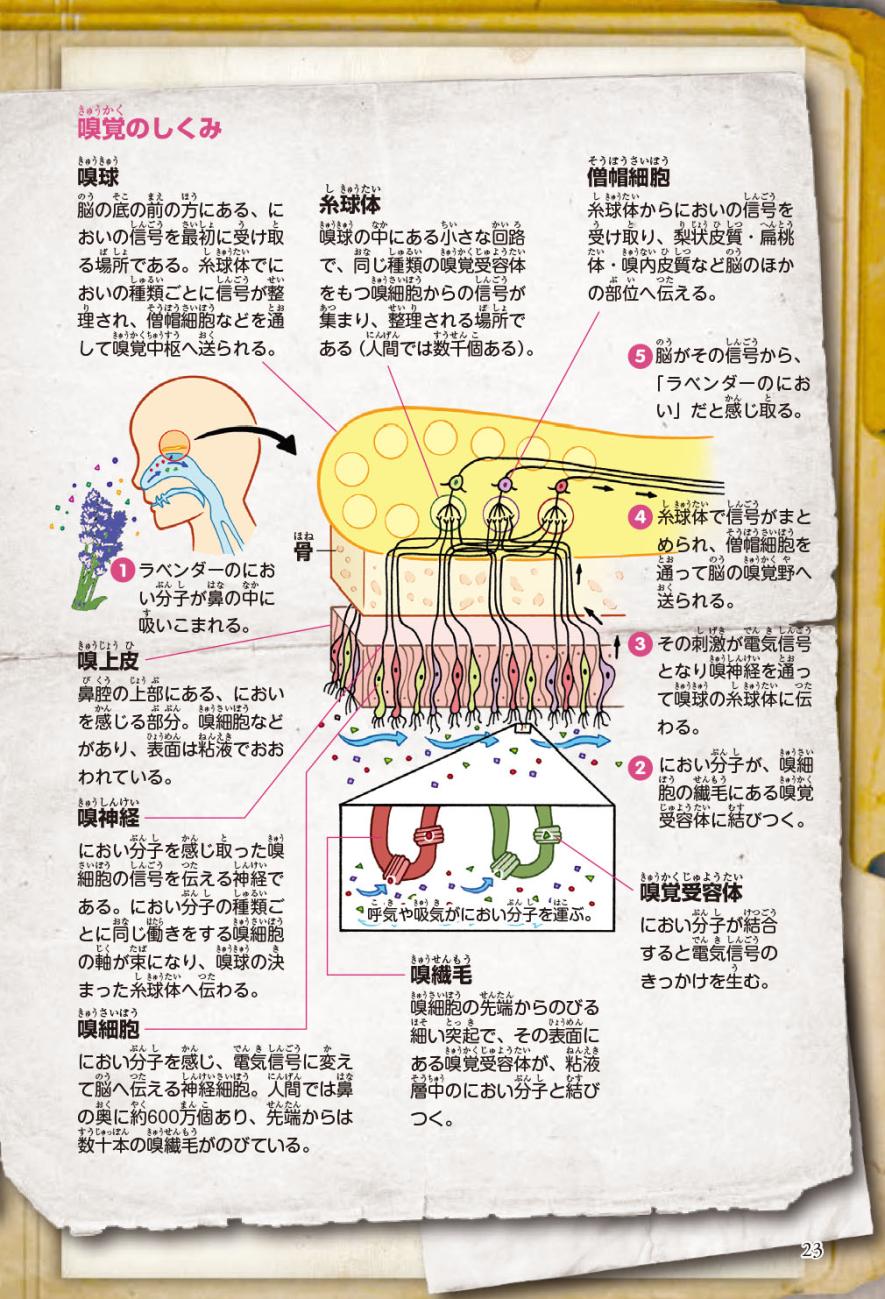 嗅覚のしくみ
嗅球
脳の底の前の方にある、に
おいの信号を最初に受け取
る場所である。糸球体でに
おいの種類ごとに信号が整
理され、僧帽細胞などを通
して嗅覚中枢へ送られる。
糸球体
嗅球の中にある小さな回路
で、同じ種類の嗅覚受容体
をもつ嗅細胞からの信号が
集まり、整理される場所で
ある（人間では数千個ある）。
僧帽細胞
糸球体からにおいの信号を
受け取り、梨状皮質・扁桃
体・嗅内皮質など脳のほか
の部位へ伝える。
5 脳がその信号から、
「ラベンダーのにお
い」だと感じ取る。
4 糸球体で信号がまと
められ、僧帽細胞を
通って脳の嗅覚野へ
送られる。
骨
1 ラベンダーのにお
い分子が鼻の中に
吸いこまれる。
3 その刺激が電気信号
となり嗅神経を通っ
て嗅球の糸球体に伝
わる。
嗅上皮
鼻腔の上部にある、におい
を感じる部分。嗅細胞など
があり、表面は粘液でおお
われている。
2 におい分子が、嗅細
胞の繊毛にある嗅覚
受容体に結びつく。
嗅神経
におい分子を感じ取った嗅
細胞の信号を伝える神経で
ある。におい分子の種類ご
とに同じ働きをする嗅細胞
の軸が束になり、嗅球の決
まった糸球体へ伝わる。
呼気や吸気がにおい分子を運ぶ。
嗅覚受容体
におい分子が結合
すると電気信号の
きっかけを生む。
嗅繊毛
嗅細胞の先端からのびる
細い突起で、その表面に
ある嗅覚受容体が、粘液
層中のにおい分子と結び
つく。
嗅細胞
におい分子を感じ、電気信号に変え
て脳へ伝える神経細胞。人間では鼻
の奥に約600万個あり、先端からは
数十本の嗅繊毛がのびている。
23